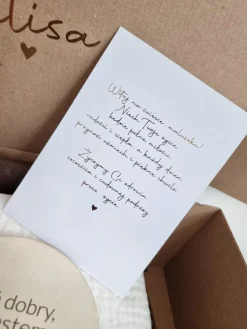 lisa
Witaj na świecie maluszku!
Niech Twoje życie
będzie pełne miłości
radości i ciepła a każdy dzień
przynosi uśmiech i piękne chwile
Życzymy Ci zdrowia
szczęścia i cudownej podróży
przez życie
dobry,
estem